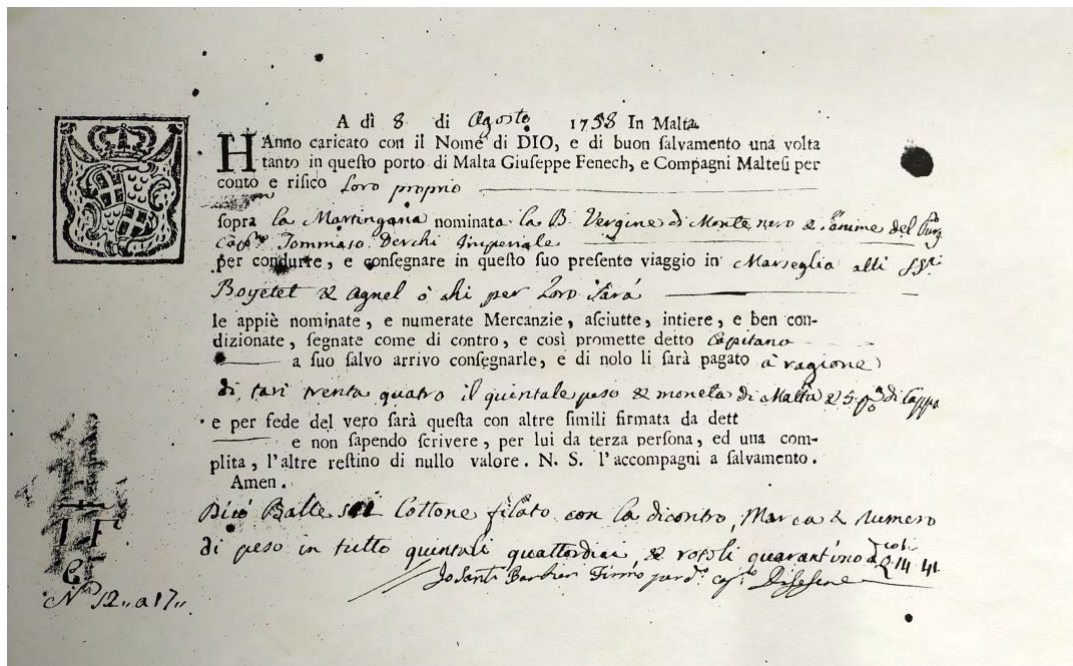 A dì 8 di Agosto 1758 In Malta
HAnno caricato con il Nome di DIO, e di buon ſalvamento una volta
tanto in queſto porto di Malta Giuſeppe Fenech, e Compagni Malteſi per
conto e riſico Loro proprio
ſopra la Martingana nominata la B. Vergine di Monte nero & l'anime del Purg
Capⁿᵒ Tommaso Derchi Imperiale
per condurre, e conſegnare in queſto ſuo preſente viaggio in Marseglia alli SSʳⁱ
Boyetet & Agnel ò chi per Loro Sarà
le appiè nominate, e numerate Mercanzie, aſciutte, intiere, e ben con-
dizionate, ſegnate come di contro, e così promette detto Capitano
a ſuo ſalvo arrivo conſegnarle, e di nolo li ſarà pagato à ragione
di tarì trenta quatro il quintale peso & moneta di Malta & 5 p% di Cappa
e per fede del vero ſarà queſta con altre ſimili firmata da dett
e non ſapendo ſcrivere, per lui da terza perſona, ed una com-
plita, l'altre reſtino di nullo valore. N. S. l'accompagni a ſalvamento.
Amen.
Dico Balle sei Cottone filato con la dicontro Marca & Numero
di peso in tutto quintali quattordici & rotoli quarantuno 14 41
Io Santi Barbieri Firmo per dº. capº.
Nº 12 a 17